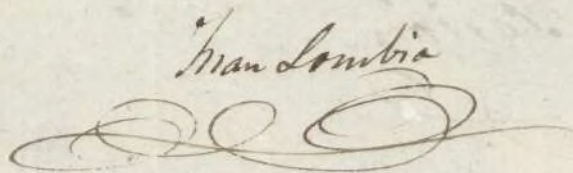 Juan Lombia